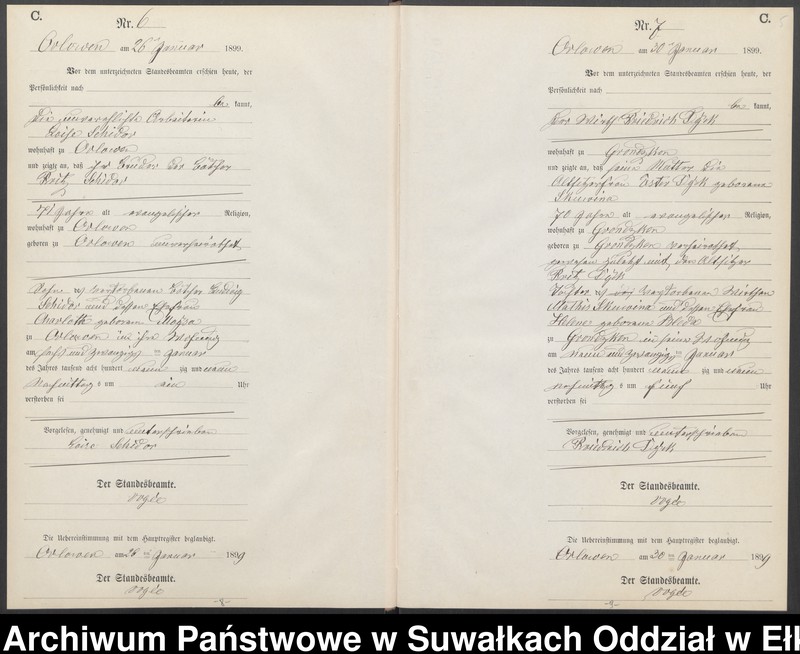 C.
Nr. 6
Orlowen am 26ten Januar 1899.
Vor dem unterzeichneten Standesbeamten erschien heute, der
Persönlichkeit nach
be kannt,
die unverehelichte Arbeiterin
Luise Schidor
wohnhaft zu Orlowen
und zeigte an, daß ihr Bruder der Käthner
Fritz Schidor
Jahre alt evangelischer Religion,
wohnhaft zu Orlowen
geboren zu Orlowen unverheirathet,
Sohn des verstorbenen Käthner Ludwig
Schidor und dessen Ehefrau
Charlotte geborenen
zu Orlowen in ihrer Wohnung
am sechs und zwanzigsten Januar
des Jahres tausend acht hundert neunzig und neun
Nachmittags um ein Uhr
verstorben sei
Vorgelesen, genehmigt und unterschrieben
Luise Schidor
Der Standesbeamte.
Die Uebereinstimmung mit dem Hauptregister beglaubigt.
Orlowen am 26ten Januar 1899
Der Standesbeamte.
C.
Nr. 7
Orlowen am 30ten Januar 1899.
Vor dem unterzeichneten Standesbeamten erschien heute, der
Persönlichkeit nach
be kannt,
der Wirth Friedrich
wohnhaft zu Grondzken
und zeigte an, daß seine Mutter die
Altsitzerfrau Ester geborene
Skuvoina
70 Jahre alt evangelischer Religion,
wohnhaft zu Grondzken
geboren zu Grondzken verheirathet
gewesen zuletzt mit dem Altsitzer
Fritz
Tochter des verstorbenen Wirthen
Mathis Skuvoina und dessen Ehefrau
Helene geborenen
zu Grondzken in seiner Wohnung
am neun und zwanzigsten Januar
des Jahres tausend acht hundert neunzig und neun
nachmittags um fünf Uhr
verstorben sei
Vorgelesen, genehmigt und unterschrieben
Friedrich
Der Standesbeamte.
Die Uebereinstimmung mit dem Hauptregister beglaubigt.
Orlowen am 30ten Januar 1899
Der Standesbeamte.
Archiwum Państwowe w Suwałkach Oddział w Ełk